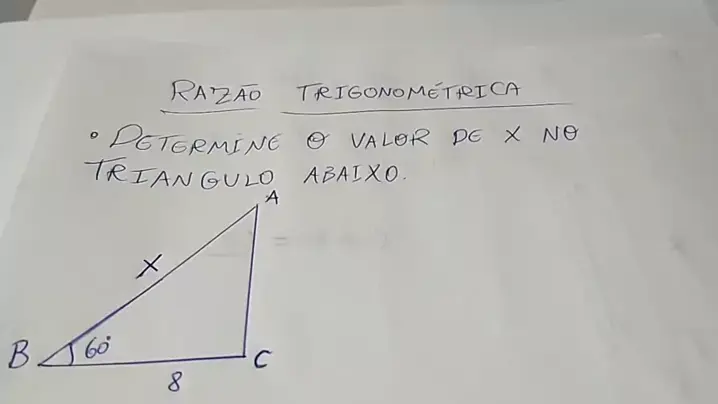 RAZÃO TRIGONOMÉTRICA
• DETERMINE O VALOR DE X NO
TRIANGULO ABAIXO.
A
X
B 60° C
8